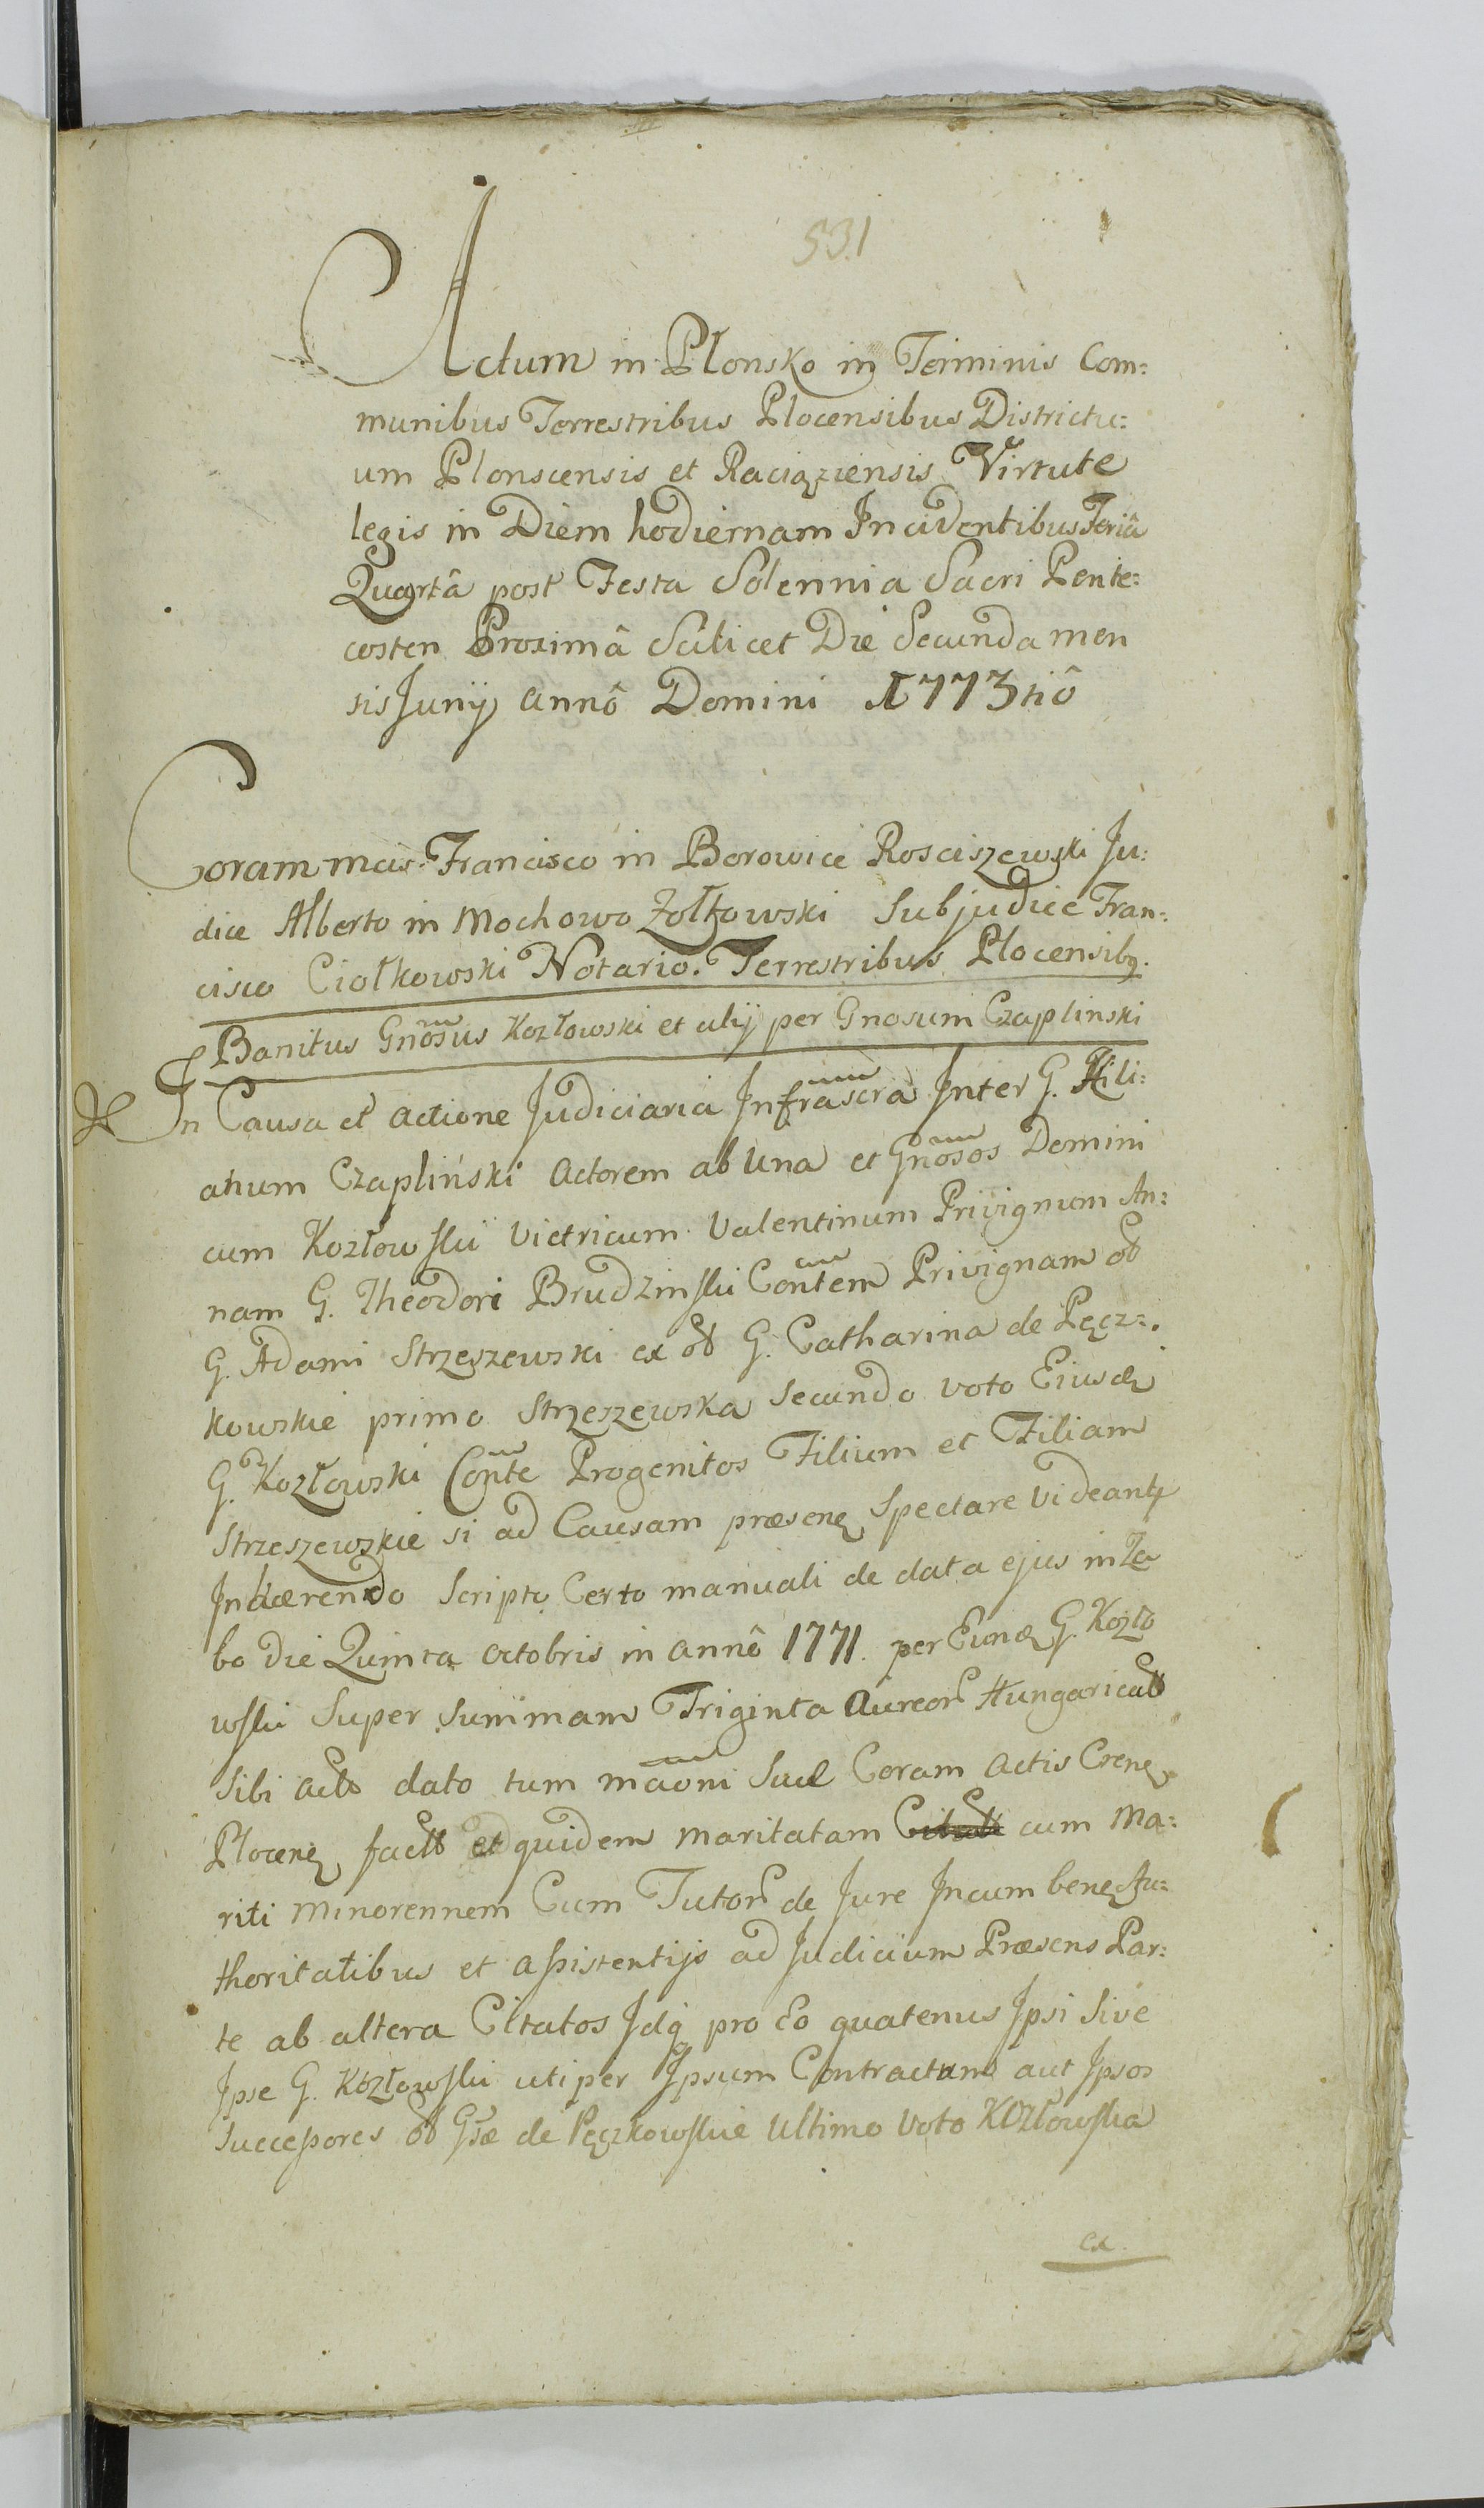 531
Actum in Plonsko in Terminis Com:
munibus Terrestribus Plocensibus Districtu:
um Plonscensis et Raciążiensis Virtute
legis in Diem hodiernam Incidentibus Feriâ
Quartâ post Festa Solennia Sacri Pente:
costen Proximâ Scilicet Die Secunda men
sis Junÿ annô Domini 1773tiô
Coram Francisco in Borowice Rosciszewski Ju:
dice Alberto in Mochowo Żołtowski Subjudice Fran:
cisco Ciołkowski Notario. Terrestribus Plocensibq.
Banitus Gnosus Kozłowski et alij per Gnosum Czaplinski
In Causa et actione Judiciaria Infrascra Inter G. Kili:
anum Czapliński Actorem ab Una et Gnosos Domini
cum Kozłowski Victricum Valentinum Privignum An:
nam G. Theodori Brudzinski Contem Privignam ol
G. Adami Strzeszewski ex ol G. Catharina de Pęcz:
kowskie primo Strzeszewska Secundo voto Ejusd
G. Kozłowski Conte Progenitos Filium et Filiam
Strzeszewskie si ad Causam præsenę Spectare Videantr
Inhærendo Scripto Certo manuali de data ejus in Za
bo die Quinta octobris in annô 1771. per Eund G. Kozło
wski Super Summam Triginta Aureor Hungarical
Sibi dato tum maoni Suæ Coram Actis Crenę
Plocenę fact et quidem maritatam cum Ma:
riti minorennem Cum Tutor de Jure Incumbenę Au:
thoritatibus et assistentijs ad Judicium Præsens Par:
te ab altera Citatos Idq pro Eo quatenus Ipsi Sive
Ipse G. Kozłowski uti per Ipsum Contractum aut Ipsos
Successores ol Gsæ de Pęczkowskie Ultimo Voto Kozłowska
ex